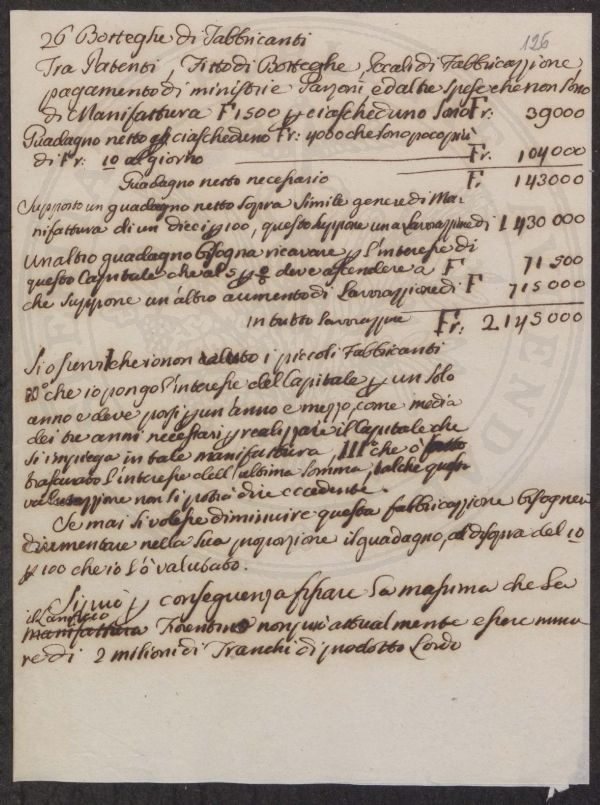 126
26 Botteghe di Fabbricanti
Tra Patenti, Fitto di Botteghe, Locali di Fabbricazzione,
pagamento di ministri e Garzoni, ed altre Spese che non sono
di Manifattura F 1500 p ciascheduno Sono Fr: 39000
Guadagno netto p ciascheduno Fr: 4000 che sono poco più
di Fr: 10 al giorno Fr: 104000
Guadagno netto necessario F. 143000
Supposto un guadagno netto sopra simile genere di Ma-
nifattura di un dieci p 100, questo suppone una Lavorazzione di 1430000
Un altro guadagno bisogna ricavare p l'interesse di
questo Capitale che al 5 p % deve ascendere a F 71500
che Suppone un altro aumento di Lavorazzione di F 715000
in tutto Lavorazzione Fr: 2145000
Si osservi che io non valuto i piccoli Fabbricanti
che io pongo l'interesse del Capitale p un solo
anno e deve porsi p un anno e mezzo, come media
dei tre anni necessari p realizzare il Capitale che
si impiega in tale manifattura, III° che ò
trascurato l'interesse dell'ultima Somma, talche questa
valutazzione non si potrà dire eccedente.
Se mai si volesse diminuire questa fabbricazzione bisognerà
aumentare nella sua proporzione il guadagno, al di sopra del 10
p 100 che io l'ò valutato.
Si può p conseguenza fissare la massima che la
il Lanificio
manifattura Fiorentino non può attualmente essere mino
re di 2 milioni di Franchi di prodotto Lordo